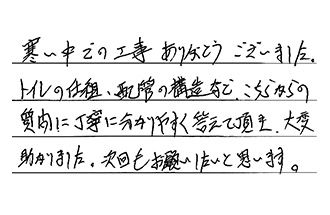 寒い中での工事ありがとうございました。
トイレの仕組、配管の構造など、こちらからの
質問に丁寧に分かりやすく答えて頂き、大変
助かりました。次回もお願いしたいと思います。